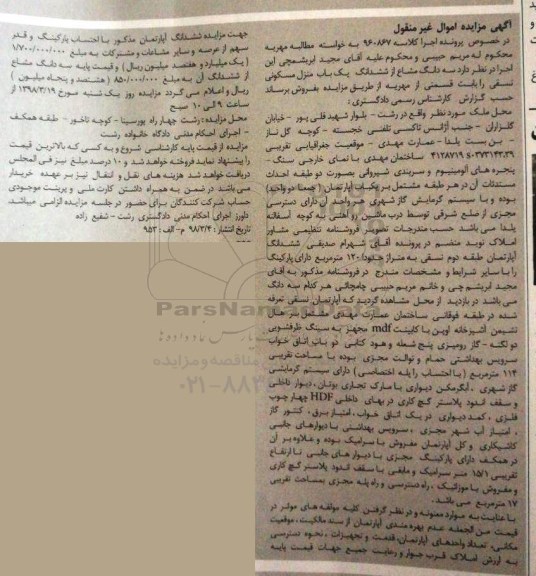 آگهی مزایده اموال غیر منقول
در خصوص پرونده اجرا کلاسه ۹۶۰۸۶۷ به خواسته مطالبه مهریه
محکوم له مریم حبیبی و محکوم علیه آقای مجید ابریشمچی این
اجرا در نظر دارد سه دانگ مشاع از ششدانگ یک باب منزل مسکونی
نسقی را بابت قسمتی از مهریه از طریق مزایده بفروش برساند
حسب گزارش کارشناس رسمی دادگستری:
محل ملک مورد نظر واقع در رشت - بلوار شهید قلی پور - خیابان
گلزاران - جنب آژانس تاکسی تلفنی خجسته - کوچه گل ناز
- بن بست یلدا - عمارت مهدی - موقعیت جغرافیایی تقریبی
ساختمان مهدی با نمای خارجی سنگ -
پنجره های آلومینیوم و سربندی شیروانی بصورت دو طبقه احداث
مستحدثات آن در هر طبقه مشتمل بر یکباب آپارتمان (جمعا دو واحد)
بوده و با سیستم گرمایش گاز شهری هر واحد آن دارای دسترسی
مجزی از ضلع شرقی توسط درب ماشین رو آهنی به کوچه آسفالته
یلدا می باشد حسب مندرجات تصویر فروشنامه تنظیمی مشاور
املاک نوید منضم در پرونده آقای شهرام صدیقی ششدانگ
آپارتمان طبقه دوم نسقی به متراژ حدودا ۱۲۰ مترمربع دارای پارکینگ
را با سایر شرایط و مشخصات مندرج در فروشنامه مذکور به آقای
مجید ابریشم چی و خانم مریم حبیبی چامچائی هر کدام سه دانگ
می باشد در بازدید از محل مشاهده گردید که آپارتمان نسقی تعرفه
شده در طبقه فوقانی ساختمان عمارت مهدی مشتمل بر هال
نشیمن آشپزخانه اوپن با کابینت mdf مجهز به سینک ظرفشویی
دو لگنه - گاز رومیزی پنج شعله و هود کتابی دو باب اتاق خواب
سرویس بهداشتی حمام و توالت مجزی بوده با مساحت تقریبی
۱۱۴ مترمربع (با احتساب راه پله اختصاصی) دارای سیستم گرمایشی
گاز شهری، آبگرمکن دیواری با مارک تجاری بوتان، دیوار داخلی
و سقف اندود پلاستر گچ کاری درب های داخلی HDF چهارچوب
فلزی، کمد دیواری در یک اتاق خواب، امتیاز برق، کنتور گاز
، امتیاز آب شهر مجزی، سرویس بهداشتی با دیوارهای جانبی
کاشیکاری و کل آپارتمان مفروش با سرامیک بوده و علاوه بر آن
در همکف دارای پارکینگ مجزی با دیوارهای جانبی تا ارتفاع
تقریبی ۱۵/۱ متر سرامیک و مابقی با سقف اندود پلاستر گچ کاری
و مفروش با موزائیک، راه دسترسی و راه پله مجزی بمساحت تقریبی
۱۷ مترمربع می باشد.
با عنایت به موارد معنونه و در نظر گرفتن کلیه مولفه های موثر در
قیمت من الجمله عدم بهره مندی آپارتمان از سند مالکیت، موقعیت
مکانی، تعداد واحدهای آپارتمان، قدمت و تجهیزات، نحوه دسترسی
به ارزش املاک قرب جوار و رعایت جمیع جهات قیمت پایه
جهت مزایده ششدانگ آپارتمان مذکور با احتساب پارکینگ و قدر
سهم از عرصه و سایر مشاعات و مشترکات به مبلغ ۱/۷۰۰/۰۰۰/۰۰۰
(یک میلیارد و هفتصد میلیون ریال) و قیمت پایه سه دانگ مشاع
از ششدانگ آن به مبلغ ۸۵۰/۰۰۰/۰۰۰ (هشتصد و پنجاه میلیون)
ریال و اعلام می گردد مزایده روز یک شنبه مورخ ۱۳۹۸/۳/۱۹ از
ساعت ۹ الی ۱۰ صبح
محل مزایده: رشت چهار راه پورسینا - کوچه تاخور - طبقه همکف
- اجرای احکام مدنی دادگاه خانواده رشت
مزایده از قیمت پایه کارشناسی شروع و به کسی که بالاترین قیمت
را پیشنهاد نماید فروخته خواهد شد و ۱۰ درصد مبلغ نیز فی المجلس
دریافت خواهد شد هزینه های نقل و انتقال نیز بر عهده خریدار
می باشد در ضمن به همراه داشتن کارت ملی و پرینت موجودی
حساب شرکت کنندگان برای حضور در جلسه مزایده الزامی میباشد.
دلورز اجرای احکام مدنی دادگستری رشت - شفیع زاده
تاریخ انتشار: ۹۸/۳/۴ م-الف: ۹۵۳
ParsNamadData